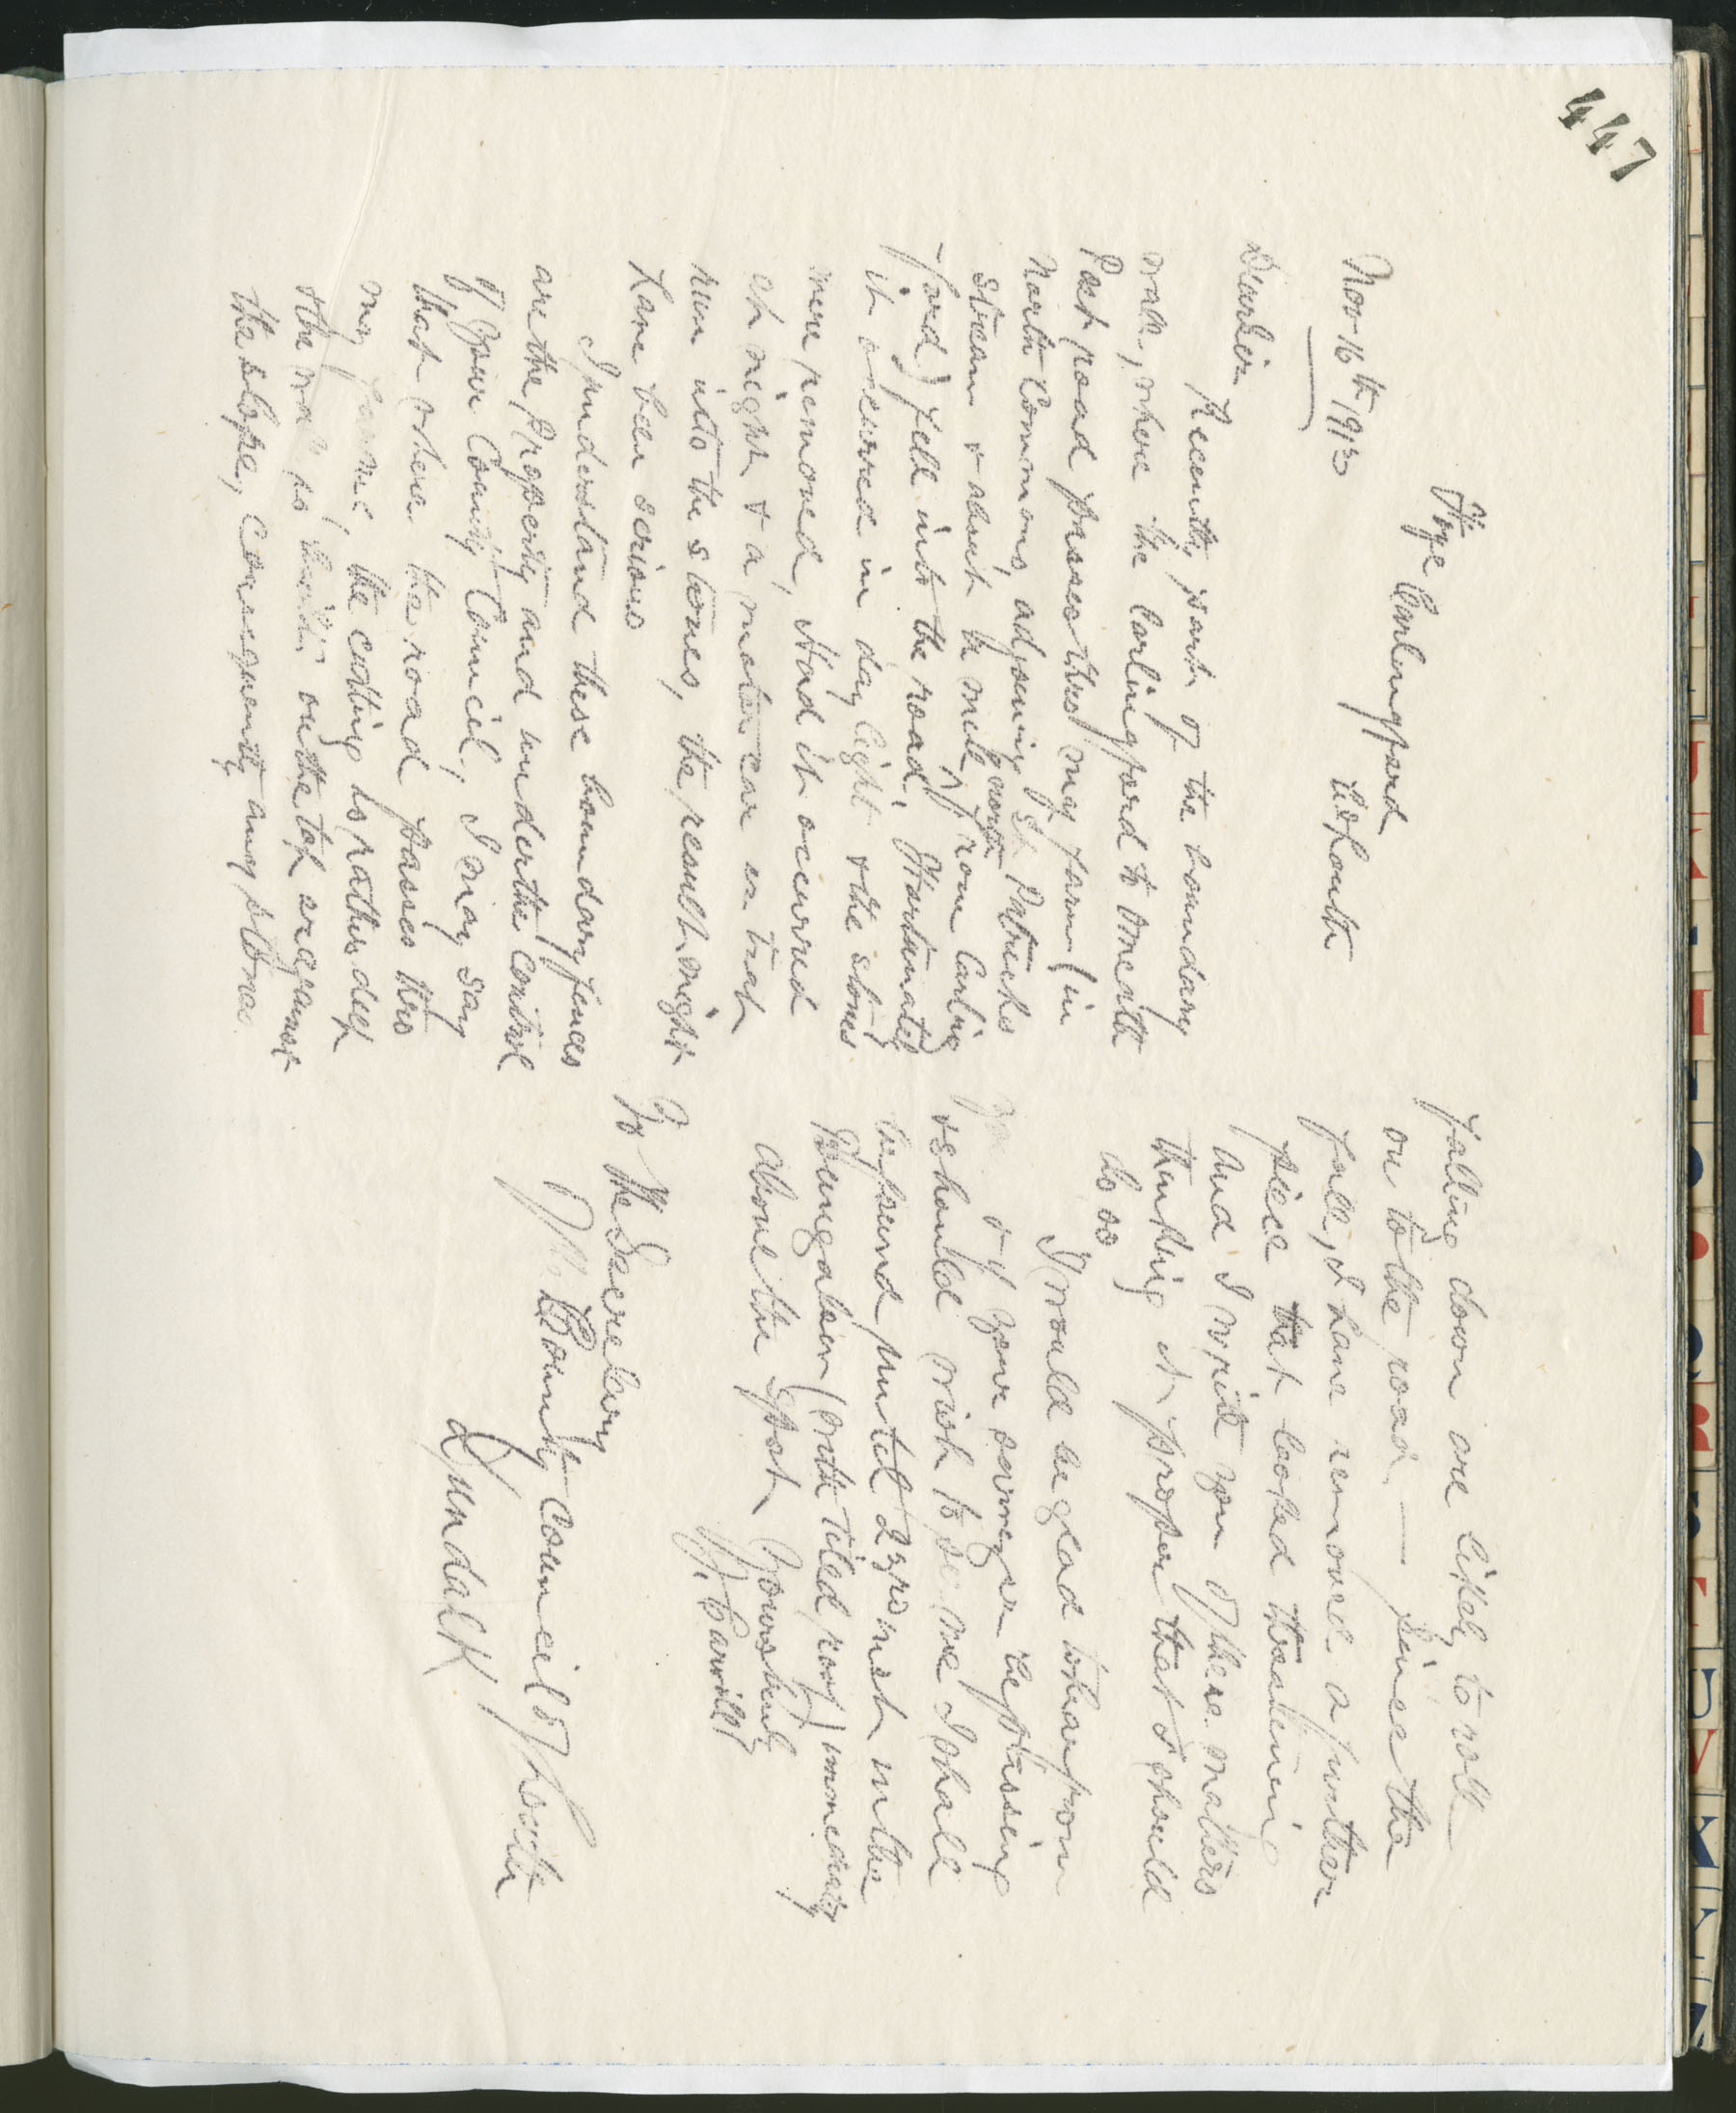 447
Nov 16th 1913
Carlingford
Co Louth
Dear Sir
Recently part of the boundary
wall, where the Carlingford to Omeath
Post road passes thro my farm (in
North Commons, adjoining St Patricks
stream & about ½ mile north from Carling
-ford) fell into the road. Fortunately
it occurred in day light & the stones
were removed, Had it occurred
at night & a motor car or trap
run into the stones, the result might
have been serious
I understand these boundary fences
are the property and under the control
of your County Council, I may say
that where the road passes thro
my farm, the cutting is rather deep
& the wall is built on the top or against
the slope, consequently any stone
falling down are likely to roll
on to the road — Since the
fall, I have removed a further
piece that looked threatening
and I write you of these matters
thinking it proper that I should
do so
I would be glad to hear from
you & if your surveyor be passing
& should wish to see me I shall
be found until 23rd inst in the
Bungalow (with tiled roof) immediately
above the spot Yours truly
F. Carvill
To The Secretary
County Council of Louth
Dundalk